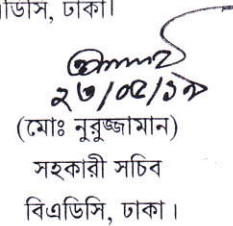 ডিসি, ঢাকা।
২৬/০৫/১৯
(মোঃ নুরুজ্জামান)
সহকারী সচিব
বিএডিসি, ঢাকা।